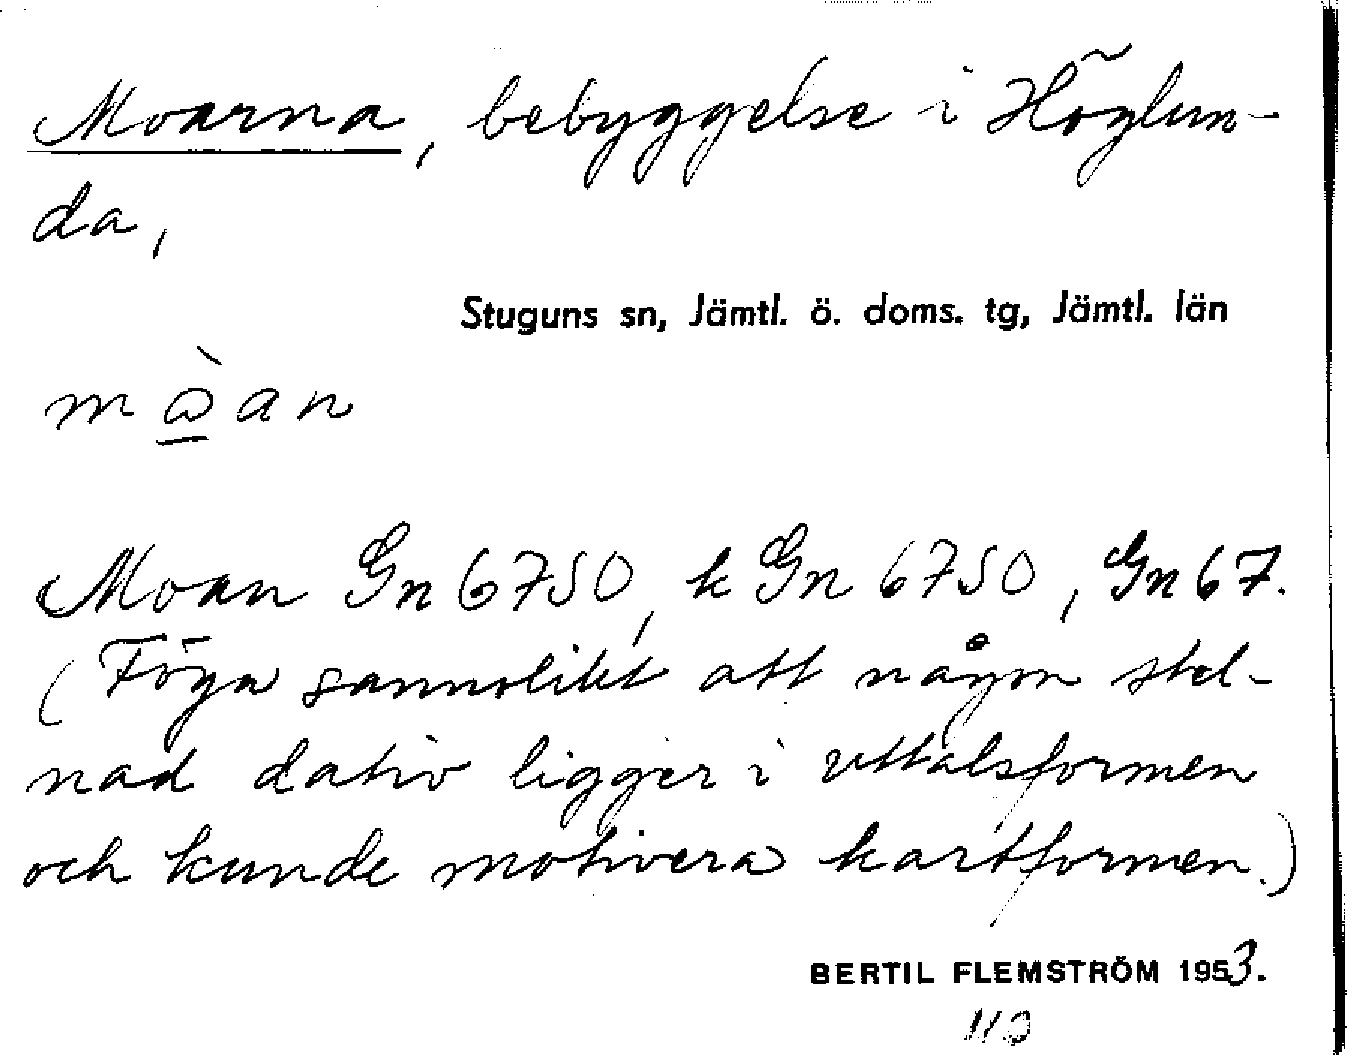 Moarna, bebyggelse i Höglun-
da,
Stuguns sn, Jämtl. ö. doms. tg, Jämtl. län
Moan Gn 6750, k Gn 6750, Gn 67.
(Föga sannolikt att någon stel-
nad dativ ligger i uttalsformen
och kunde motivera kartformen.)
BERTIL FLEMSTRÖM 1953.